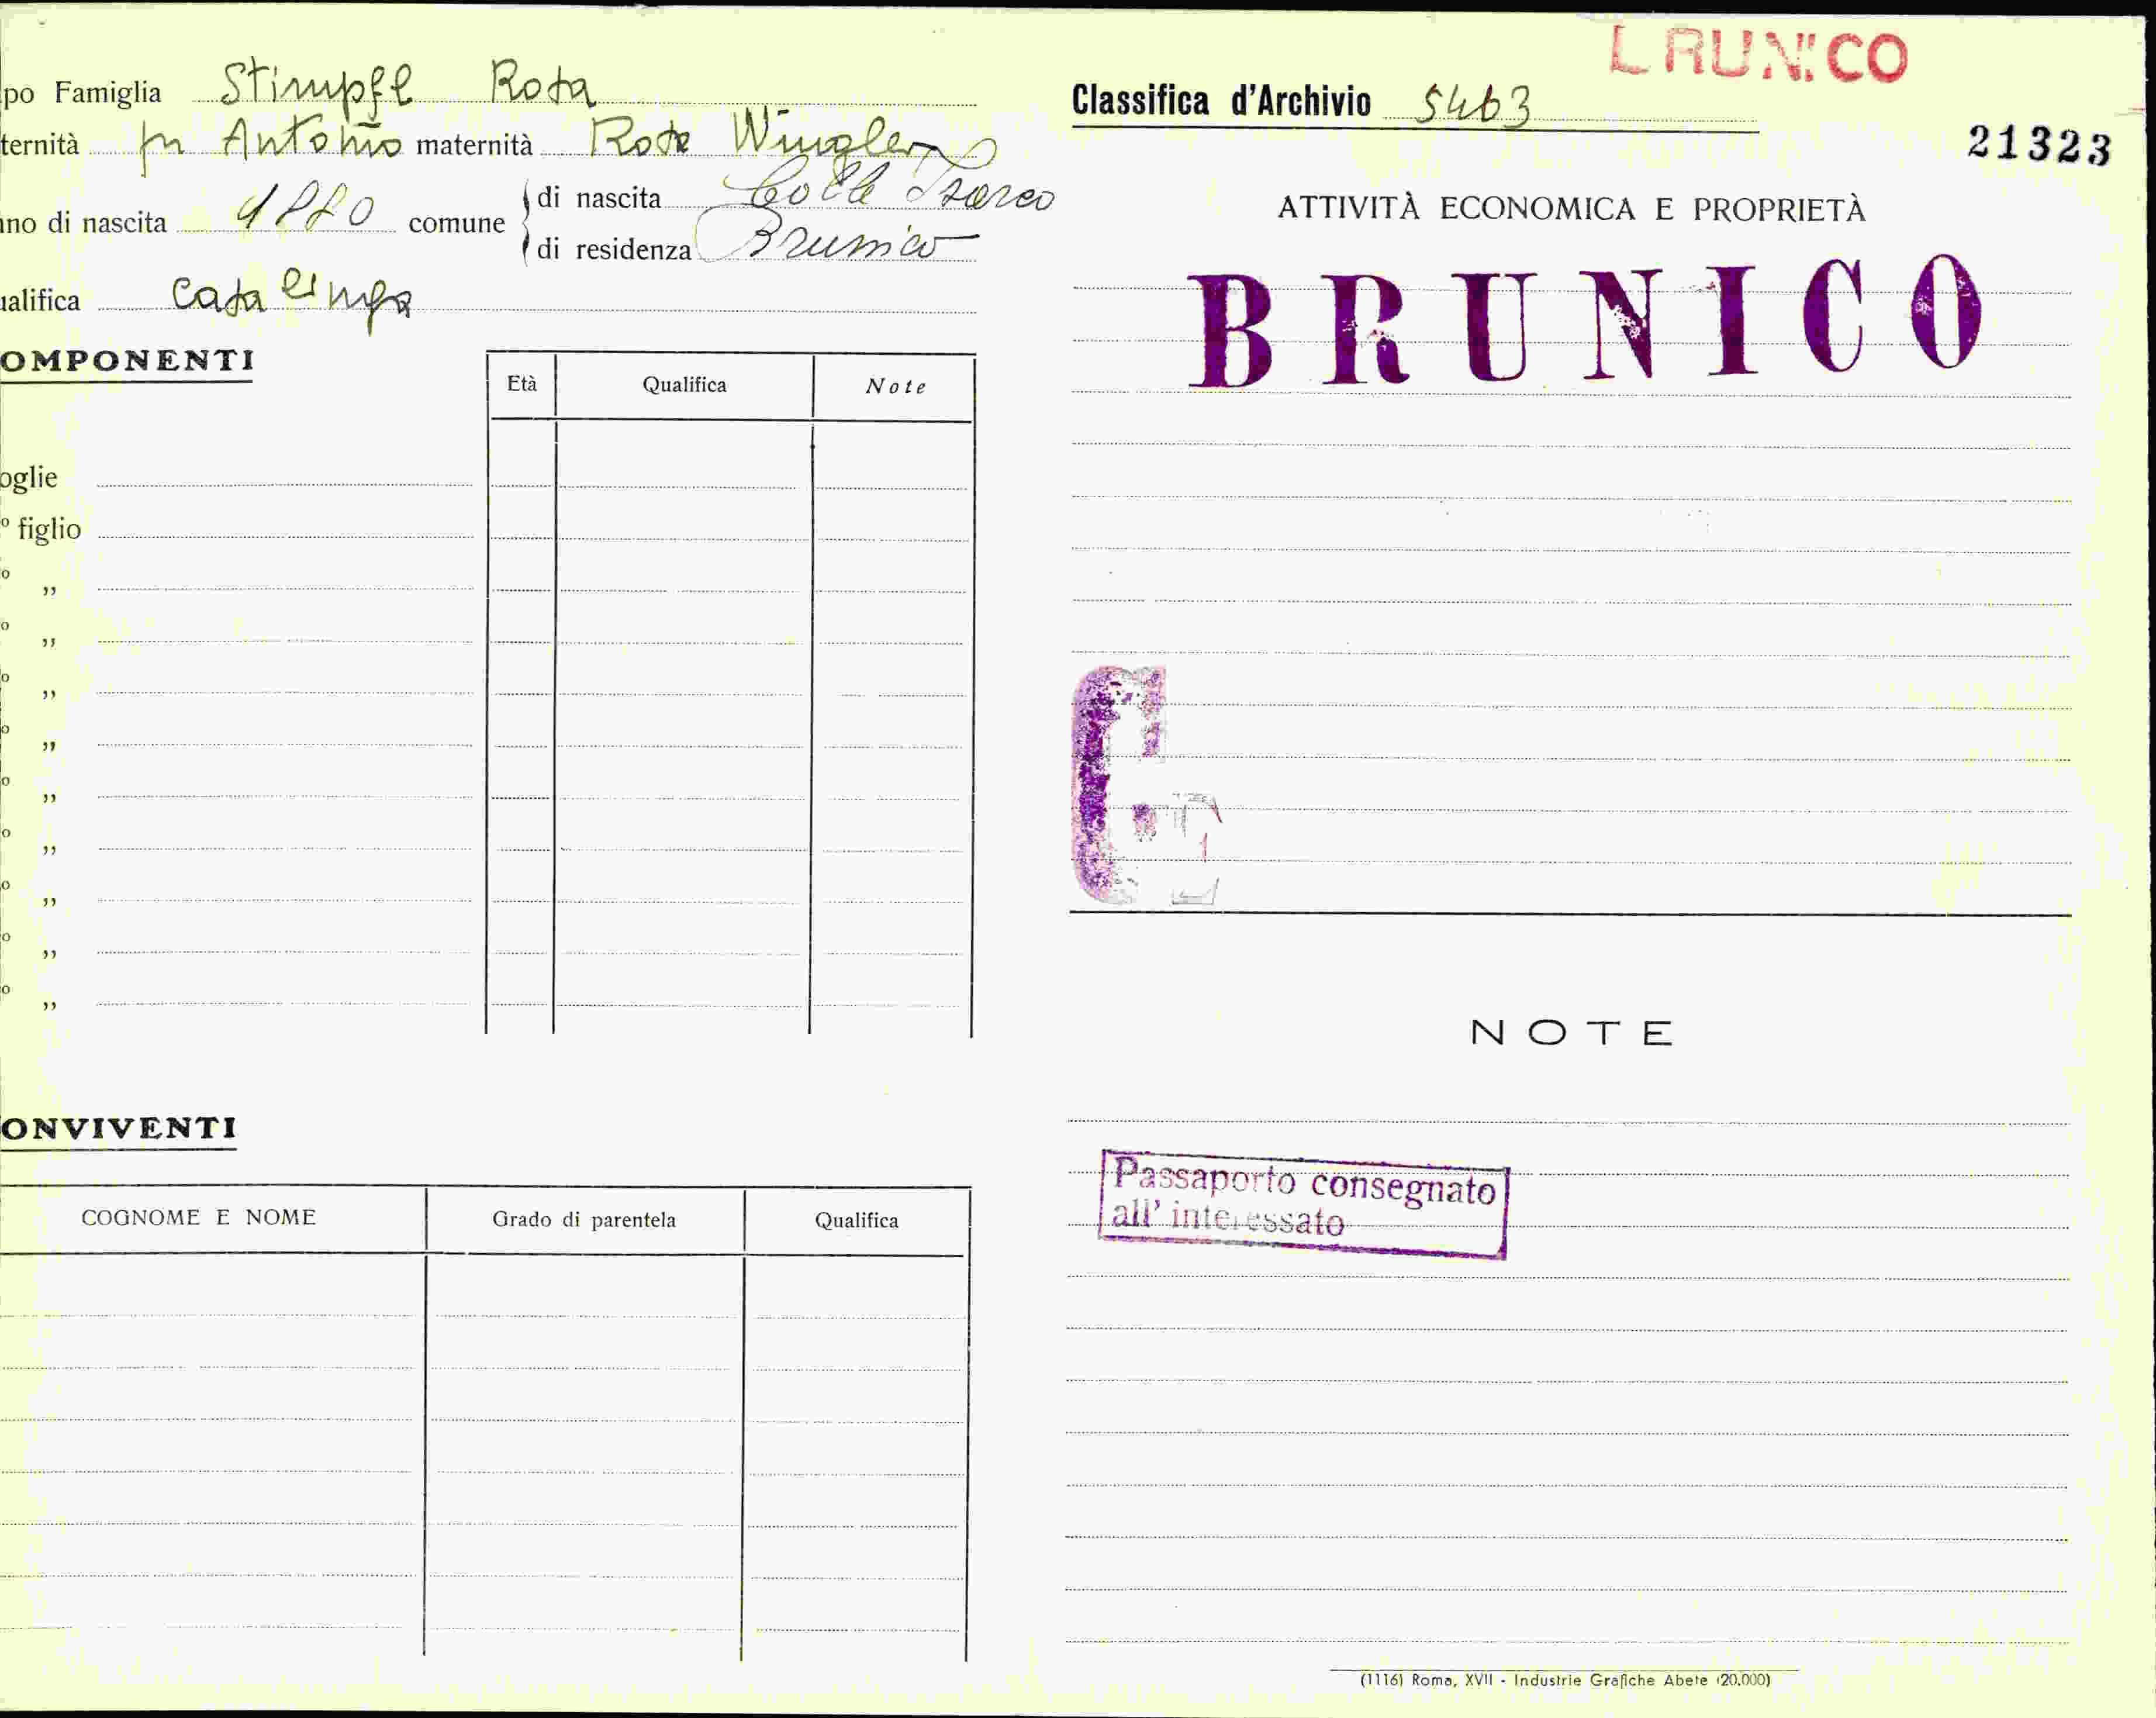 po Famiglia Stimpfl Rosa
ternità fu Antonio maternità Rosa Wingler
no di nascita 1880 comune di nascita Colle Isarco
di residenza Brunico
alifica Casalinga
OMPONENTI
Età Qualifica Note
oglie
° figlio
° „
° „
° „
° „
° „
° „
° „
° „
° „
ONVIVENTI
COGNOME E NOME Grado di parentela Qualifica
L RUNICO
Classifica d'Archivio 5463
21323
ATTIVITÀ ECONOMICA E PROPRIETÀ
BRUNICO
NOTE
Passaporto consegnato
all' interessato
(1116) Roma, XVII - Industrie Grafiche Abete (20.000)